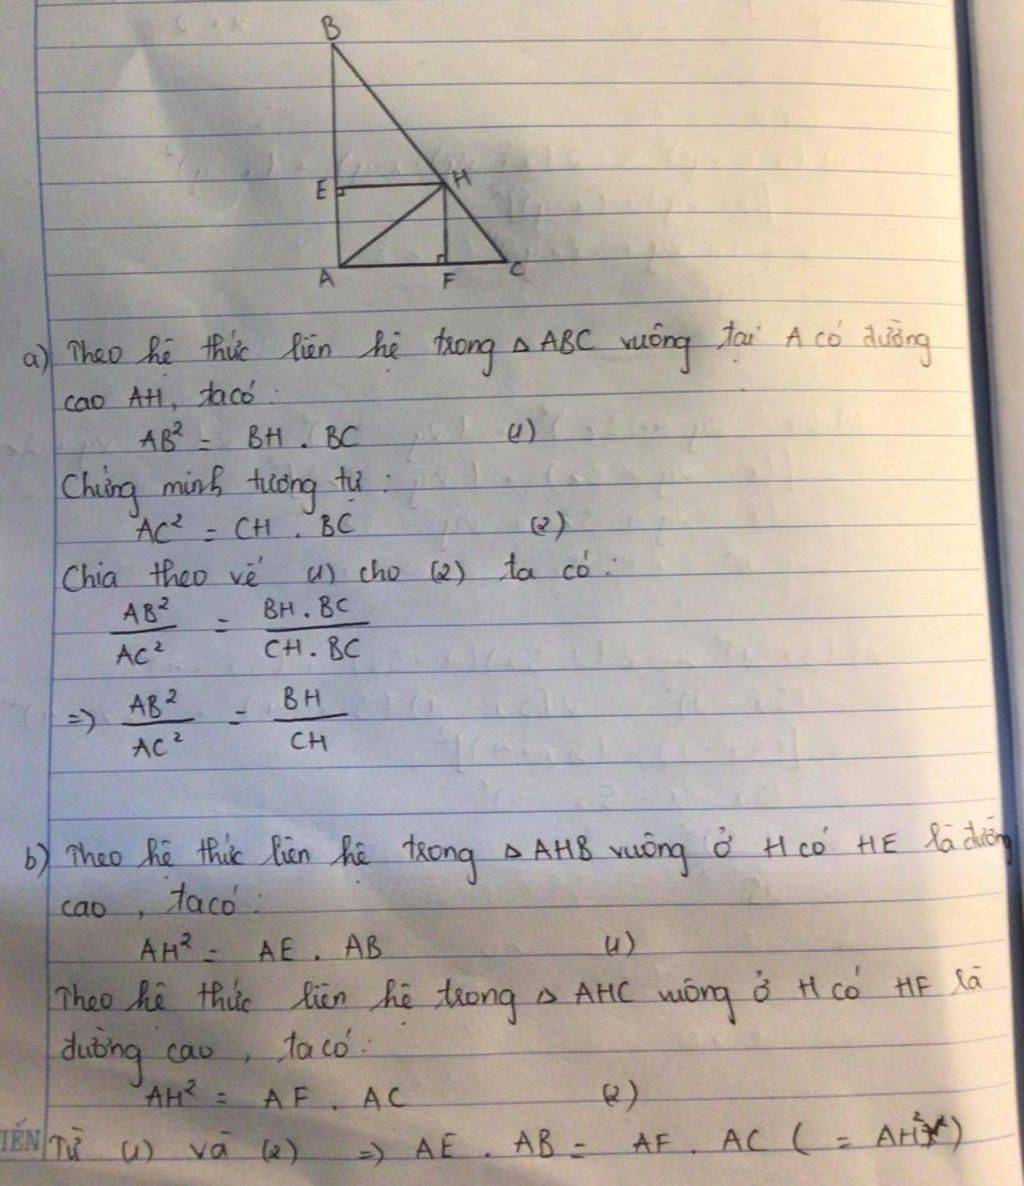 B
E
H
A
F
C
a) Theo hệ thức liên hệ trong △ ABC vuông tại A có đường
cao AH, ta có :
AB² = BH . BC (1)
Chứng minh tương tự :
AC² = CH . BC (2)
Chia theo vế (1) cho (2) ta có :
AB²/AC² = BH . BC/CH . BC
=> AB²/AC² = BH/CH
b) Theo hệ thức liên hệ trong △ AHB vuông ở H có HE là đường
cao , ta có :
AH² = AE . AB (1)
Theo hệ thức liên hệ trong △ AHC vuông ở H có HF là
đường cao , ta có :
AH² = AF . AC (2)
IẾN
Từ (1) và (2) => AE . AB = AF . AC ( = AH²)